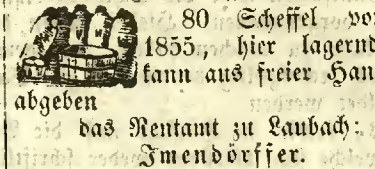 80 Scheffel vo
1855., hier lagernd
kann aus freier Han
abgeben
das Rentamt zu Laubach:
Imendörffer.